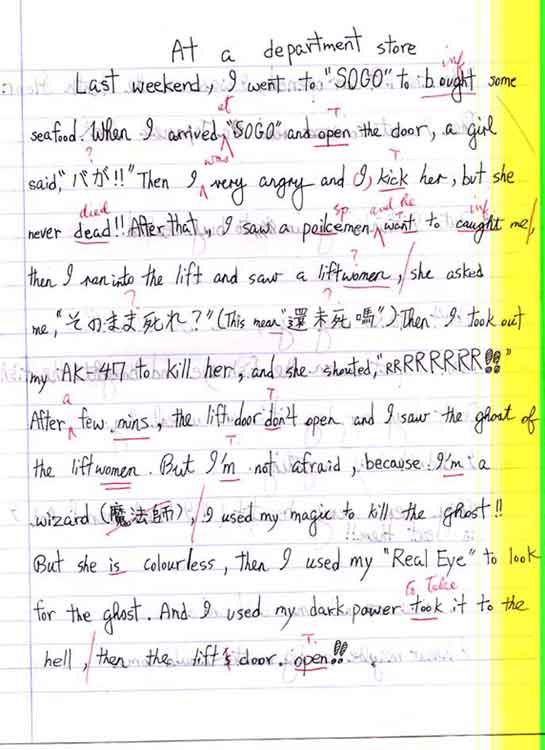 At a department store
Last weekend, I went to "SOGO" to bought some
inf
at T
seafood. When I arrived, "SOGO" and open the door, a girl
? was T
said, "バが!!" Then I very angry and I, kick her, but she
died sp and he inf
never dead!! After that, I saw a poilcemen want to caught me,
?
then I ran into the lift and saw a liftwomen, she asked
? ?
me, "そのまま死れ?" (This mean "還未死嗎") Then I took out
my AK-47 to kill her, and she shouted, "RRRRRRRRR!!"
a T
After few mins, the lift door don't open and I saw the ghost of
T
the liftwomen. But I'm not afraid, because I'm a
wizard (魔法師), I used my magic to kill the ghost!!
But she is colourless, then I used my "Real Eye" to look
to take
for the ghost. And I used my dark power took it to the
T
hell, then the lift door. open!!